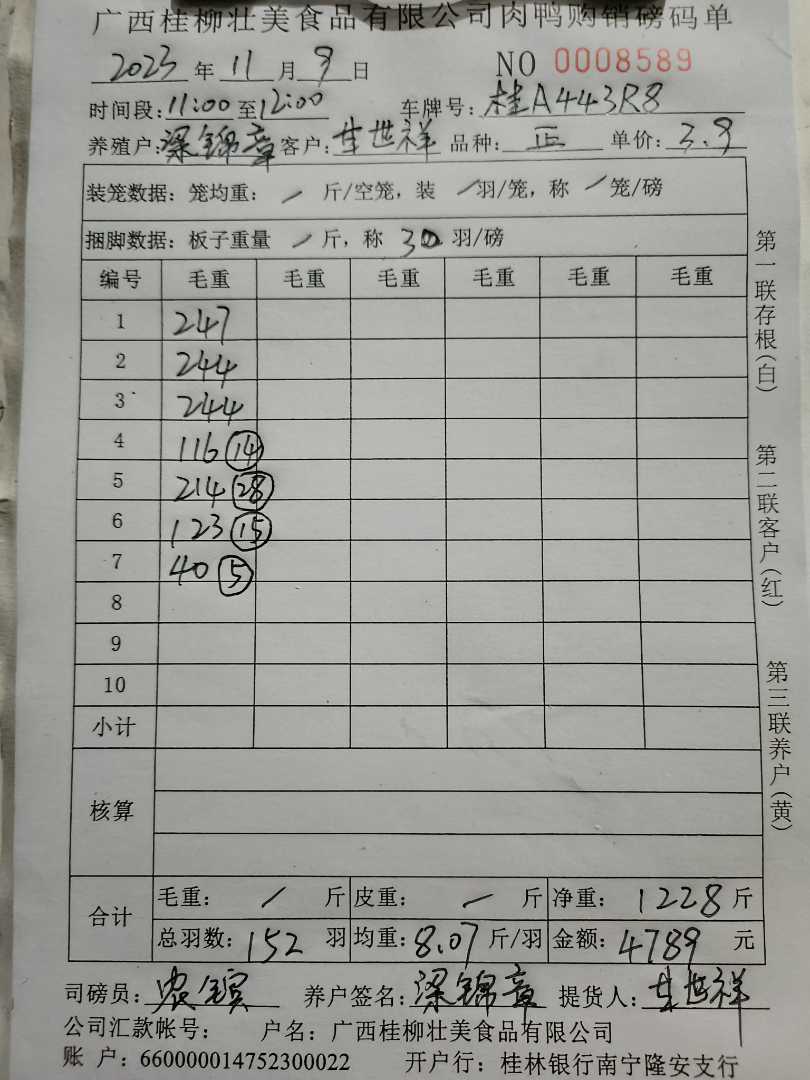 广西桂柳壮美食品有限公司肉鸭购销磅码单
2023 年 11 月 9 日 NO 0008589
时间段: 11:00 至 12:00 车牌号: 桂A443R8
养殖户: 梁锦章 客户: 甘世祥 品种: 正 单价: 3.9
装笼数据: 笼均重: / 斤/空笼, 装 / 羽/笼, 称 / 笼/磅
捆脚数据: 板子重量 / 斤, 称 30 羽/磅
编号 毛重 毛重 毛重 毛重 毛重 毛重
1 247
2 244
3 244
4 116 14
5 214 28
6 123 15
7 40 5
8
9
10
小计
核算
合计 毛重: / 斤 皮重: / 斤 净重: 1228 斤
总羽数: 152 羽 均重: 8.07 斤/羽 金额: 4789 元
司磅员: 农 养户签名: 梁锦章 提货人: 甘世祥
公司汇款帐号: 户名: 广西桂柳壮美食品有限公司
账 户: 660000014752300022 开户行: 桂林银行南宁隆安支行
第一联存根(白)
第二联客户(红)
第三联养户(黄)